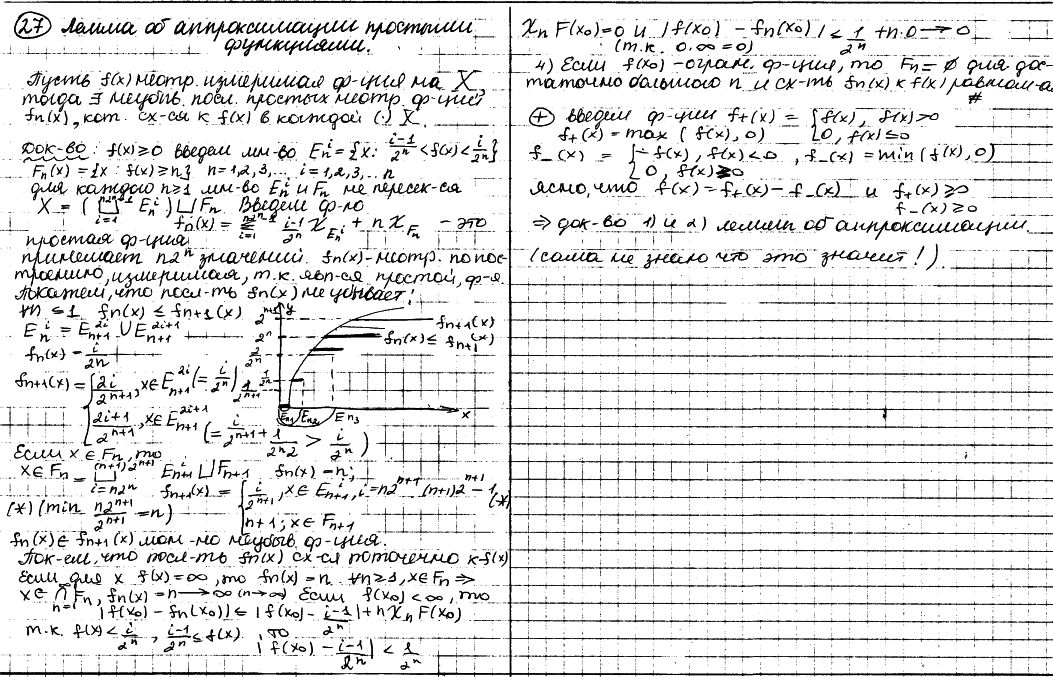 27 Лемма об аппроксимации простыми
функциями.
Пусть f(x) неотр. измеримая ф-ция на X,
тогда ∃ неубыв. посл. простых неотр. ф-ций
fn(x), кот. сх-ся к f(x) в каждой (·) X.
Док-во: f(x)≥0 введем мн-во Eₙⁱ={x: (i-1)/2ⁿ<f(x)<i/2ⁿ}
Fₙ(x)={x: f(x)≥n} n=1,2,3,... i=1,2,3,... n
для каждого n≥1 мн-во Eₙⁱ и Fₙ не пересек-ся
X = (⊔ Eₙⁱ)⊔Fₙ. Введем ф-ю
fₙ(x)= Σ (i-1)/2ⁿ χ_Eₙⁱ + n χ_Fₙ - это
простая ф-ция
принимает n2ⁿ значений. fn(x)-неотр. по пос-
троению, измеримая, т.к. явл-ся простой, ф-я.
Покажем, что посл-ть fn(x) не убывает!
fn(x) ≤ fn+1(x)
Eₙⁱ = Eₙ₊₁²ⁱ ∪ Eₙ₊₁²ⁱ⁺¹
fn(x) = i/2n
fn+1(x) = { 2i/2ⁿ⁺¹, x∈Eₙ₊₁²ⁱ (= i/2ⁿ)
2i+1/2ⁿ⁺¹, x∈Eₙ₊₁²ⁱ⁺¹ (= i/2ⁿ⁺¹ + 1/2ⁿ2 > i/2ⁿ)
y
2ⁿ⁺¹
2ⁿ
fn+1(x)
fn(x) ≤ fn+1(x)
En1 En2 En3
x
Если x∈Fn, то
x∈Fn = ⊔ Eⁱn+1 ⊔ Fn+1 fn(x)=n;
fn+1(x) = { i/2ⁿ⁺¹, x∈Eⁱn+1, i=n2ⁿ⁺¹ (n+1)2ⁿ⁺¹-1 (*)
(*) (min n2ⁿ⁺¹/2ⁿ⁺¹ = n) n+1; x∈Fn+1
fn(x)∈fn+1(x) мон-но неубыв. ф-ция.
Пок-ем, что посл-ть fn(x) сх-ся поточечно к f(x)
Если для x f(x)=∞, то fn(x)=n ∀n≥1, x∈Fn ⇒
x∈∩Fn, fn(x)=n→∞(n→∞) Если f(x₀)<∞, то
|f(x₀) - fn(x₀)| ≤ |f(x₀) - (i-1)/2ⁿ| + nχₙF(x₀)
т.к. f(x)<i/2ⁿ, (i-1)/2ⁿ≤f(x), то
|f(x₀) - (i-1)/2ⁿ| < 1/2ⁿ
χₙF(x₀)=0 и |f(x₀) - fn(x₀)| ≤ 1/2ⁿ +n·0→0
(т.к. 0·∞=0)
4) Если f(x₀)-огран. ф-ция, то Fn=∅ для дос-
таточно большого n и сх-ть fn(x) к f(x) равном-ая
#
+ введем ф-ции f₊(x) = {f(x), f(x)>0
f₊(x)=max (f(x),0) 0, f(x)≤0
f₋(x) = {-f(x), f(x)<0, f₋(x)=min(f(x),0)
0, f(x)≥0
ясно, что f(x)=f₊(x)-f₋(x) и f₊(x)≥0
f₋(x)≥0
⇒ док-во 1) и 2) леммы об аппроксимации.
(сама не знаю что это значит!).